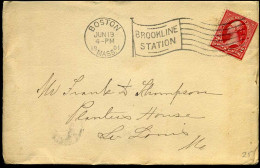 BOSTON
JUN 19
4-PM
MASS.
BROOKLINE
STATION
Mr Frank D Thompson
Planters House
St Louis
Mo